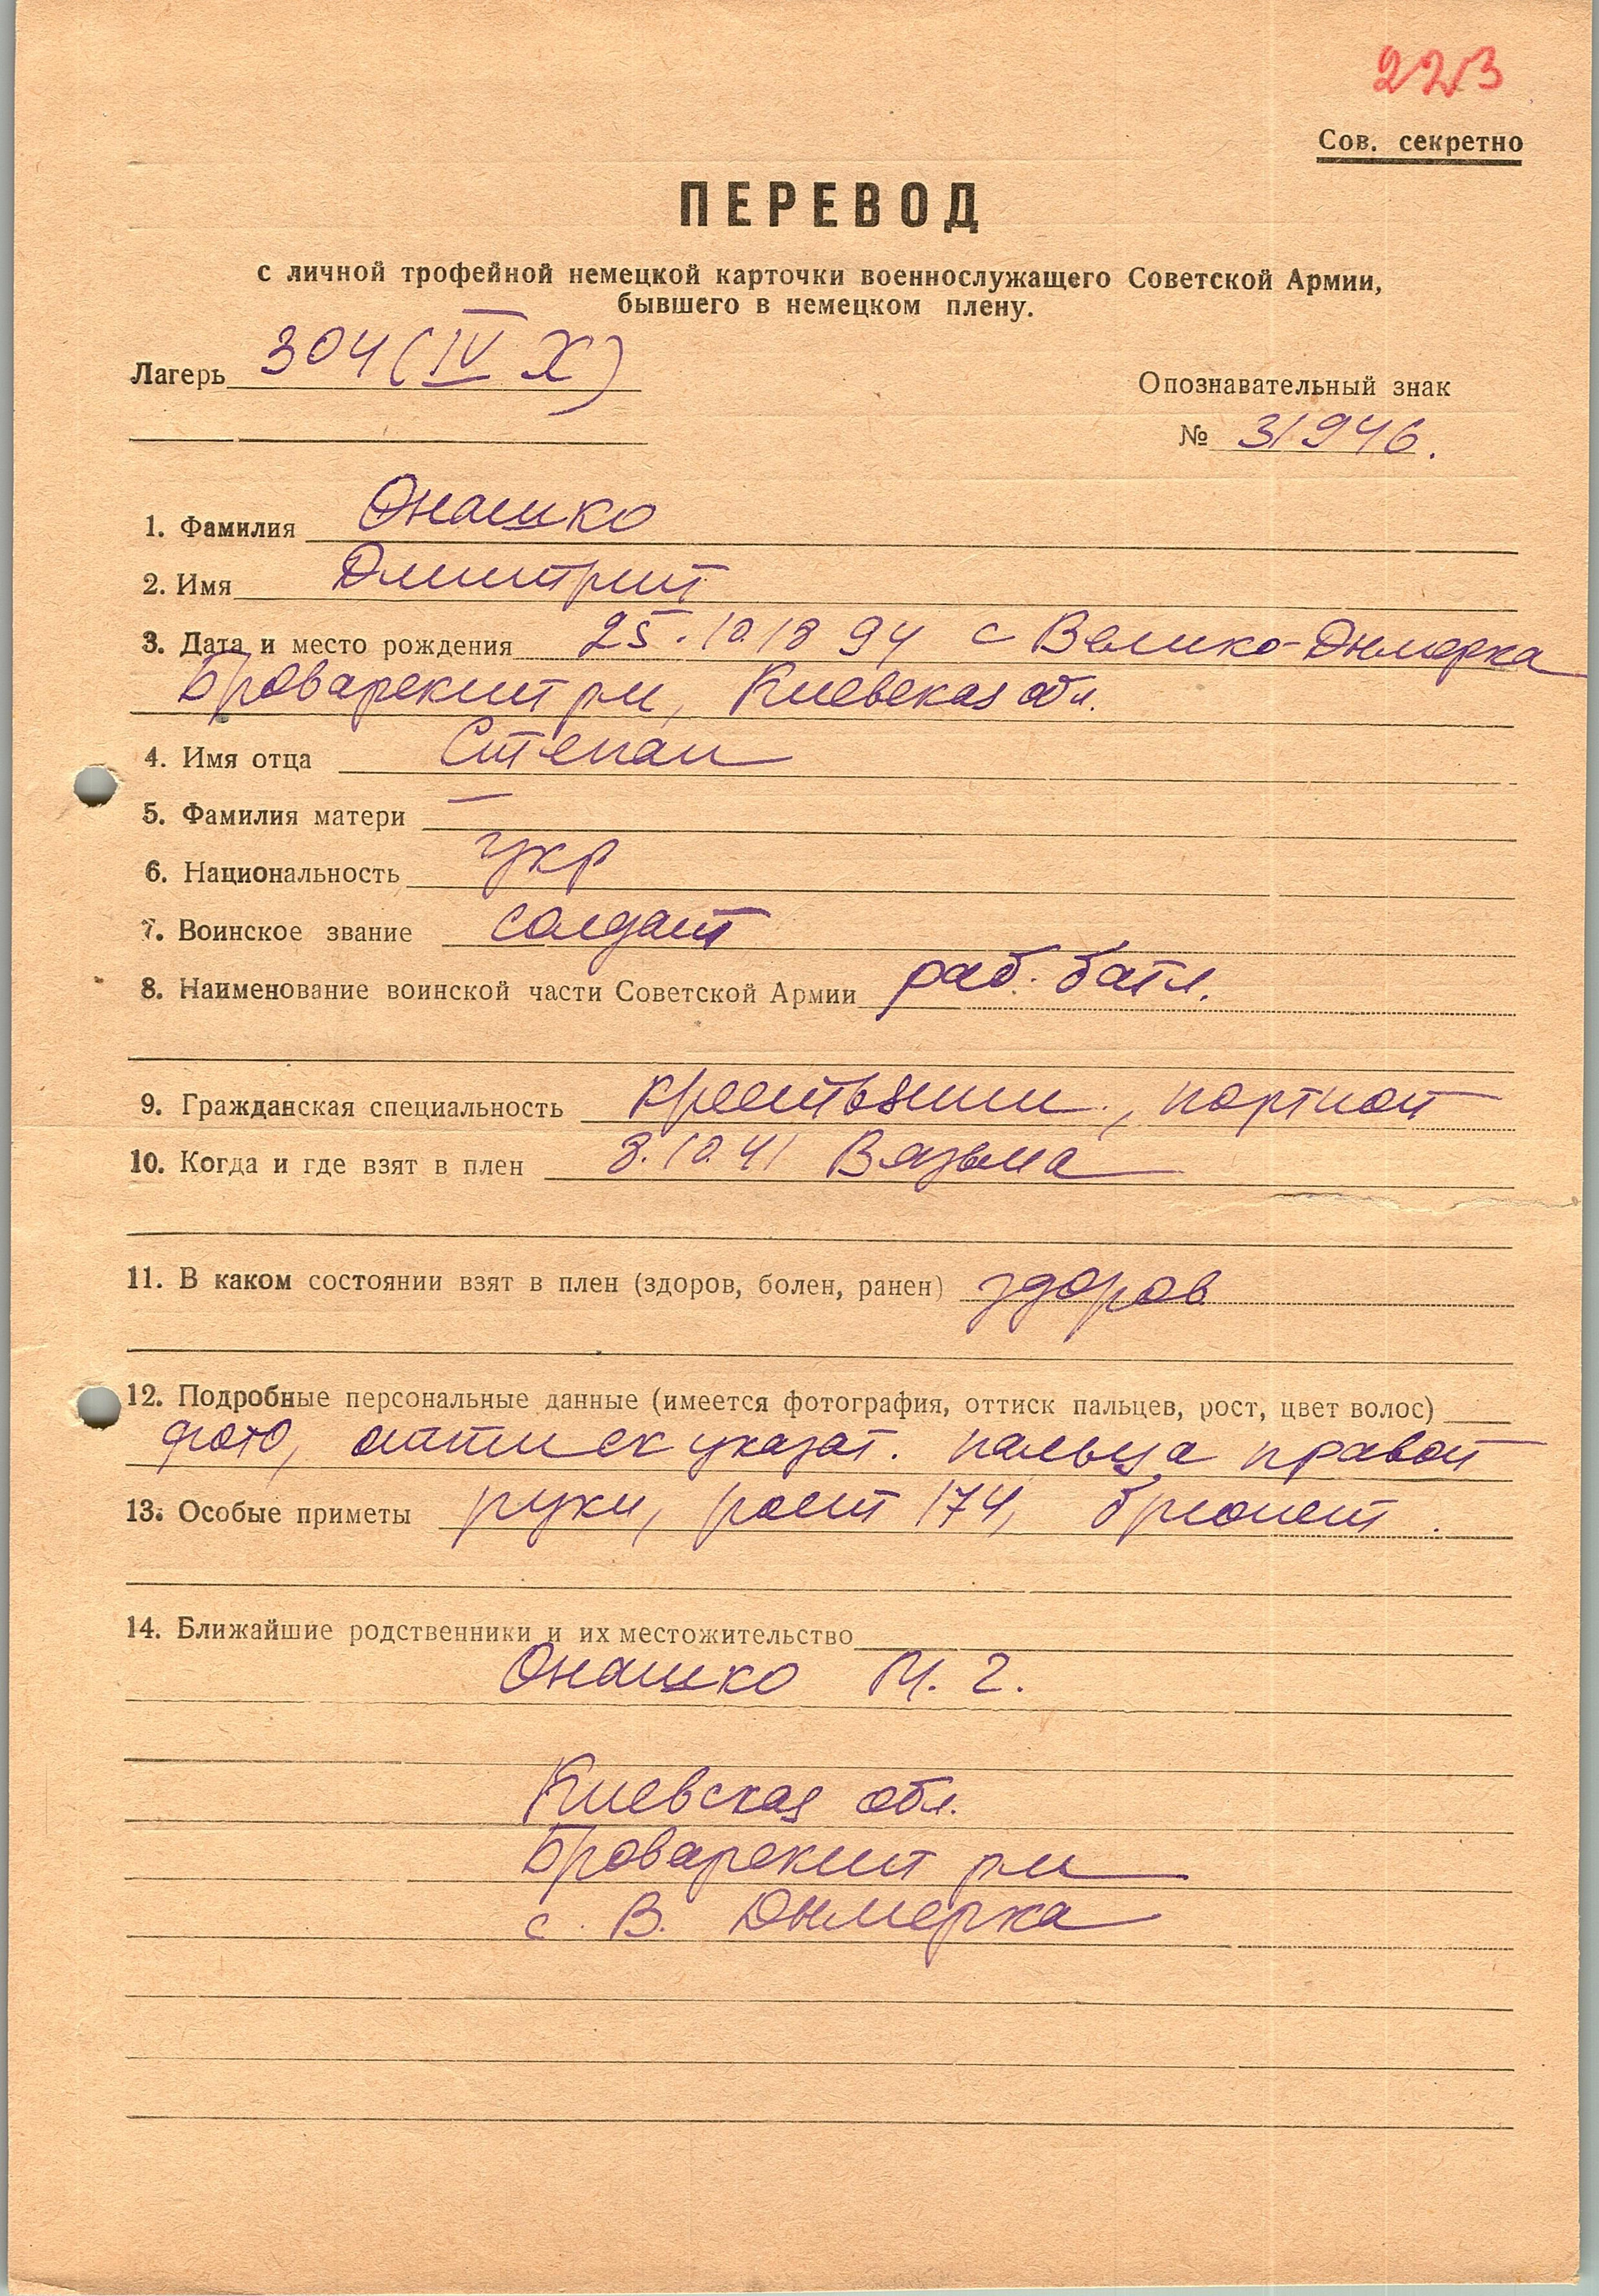 223
Сов. секретно
ПЕРЕВОД
с личной трофейной немецкой карточки военнослужащего Советской Армии,
бывшего в немецком плену.
Лагерь 304 (IV Х)
Опознавательный знак
№ 31946.
1. Фамилия Онашко
2. Имя Дмитрий
3. Дата и место рождения 25.10.1894 с Велико-Дымерка
Броварский рн, Киевская обл.
4. Имя отца Степан
5. Фамилия матери —
6. Национальность укр
7. Воинское звание солдат
8. Наименование воинской части Советской Армии раб. батл.
9. Гражданская специальность крестьянин, портной
10. Когда и где взят в плен 8.10.41 Вязьма
11. В каком состоянии взят в плен (здоров, болен, ранен) здоров
12. Подробные персональные данные (имеется фотография, оттиск пальцев, рост, цвет волос)
фото, оттиск указат. пальца правой
13. Особые приметы руки, рост 174, брюнет.
14. Ближайшие родственники и их местожительство
Онашко М. Г.
Киевская обл.
Броварский рн
с. В. Дымерка